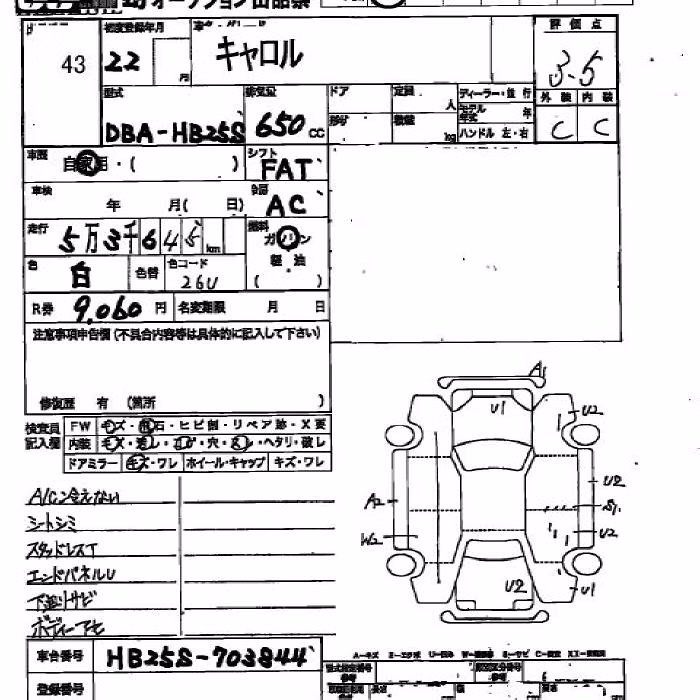 オークション出品票
43
初度登録年月 22 年
キャロル
評価点 3.5
外装 内装
C C
型式 DBA-HB25S
排気量 650 CC
ドア
定員 人
形状
積載 kg
ディーラー・並行
モデル年式 年
ハンドル 左・右
車歴 自家用・( )
シフト FAT
車検 年 月( 日)
冷房 AC
走行 5万3千645km
燃料 ガソリン
軽油
( )
色 白 色替 色コード 26U
R券 9,060円 名変期限 月 日
注意事項申告欄(不具合内容等は具体的に記入して下さい)
修復歴 有 (箇所 )
検査員記入欄
FW キズ・飛石・ヒビ割・リペア跡・X要
内装 キズ・汚れ・コゲ・穴・スレ・ヘタリ・破レ
ドアミラー キズ・ワレ ホイール・キャップ キズ・ワレ
A/C冷えない
シートシミ
スタッドレスT
エンドパネルU
下廻りサビ
A1
U1
U2
U2
S1
U2
U1
A2
W2
U2
車台番号 HB25S-703844
登録番号